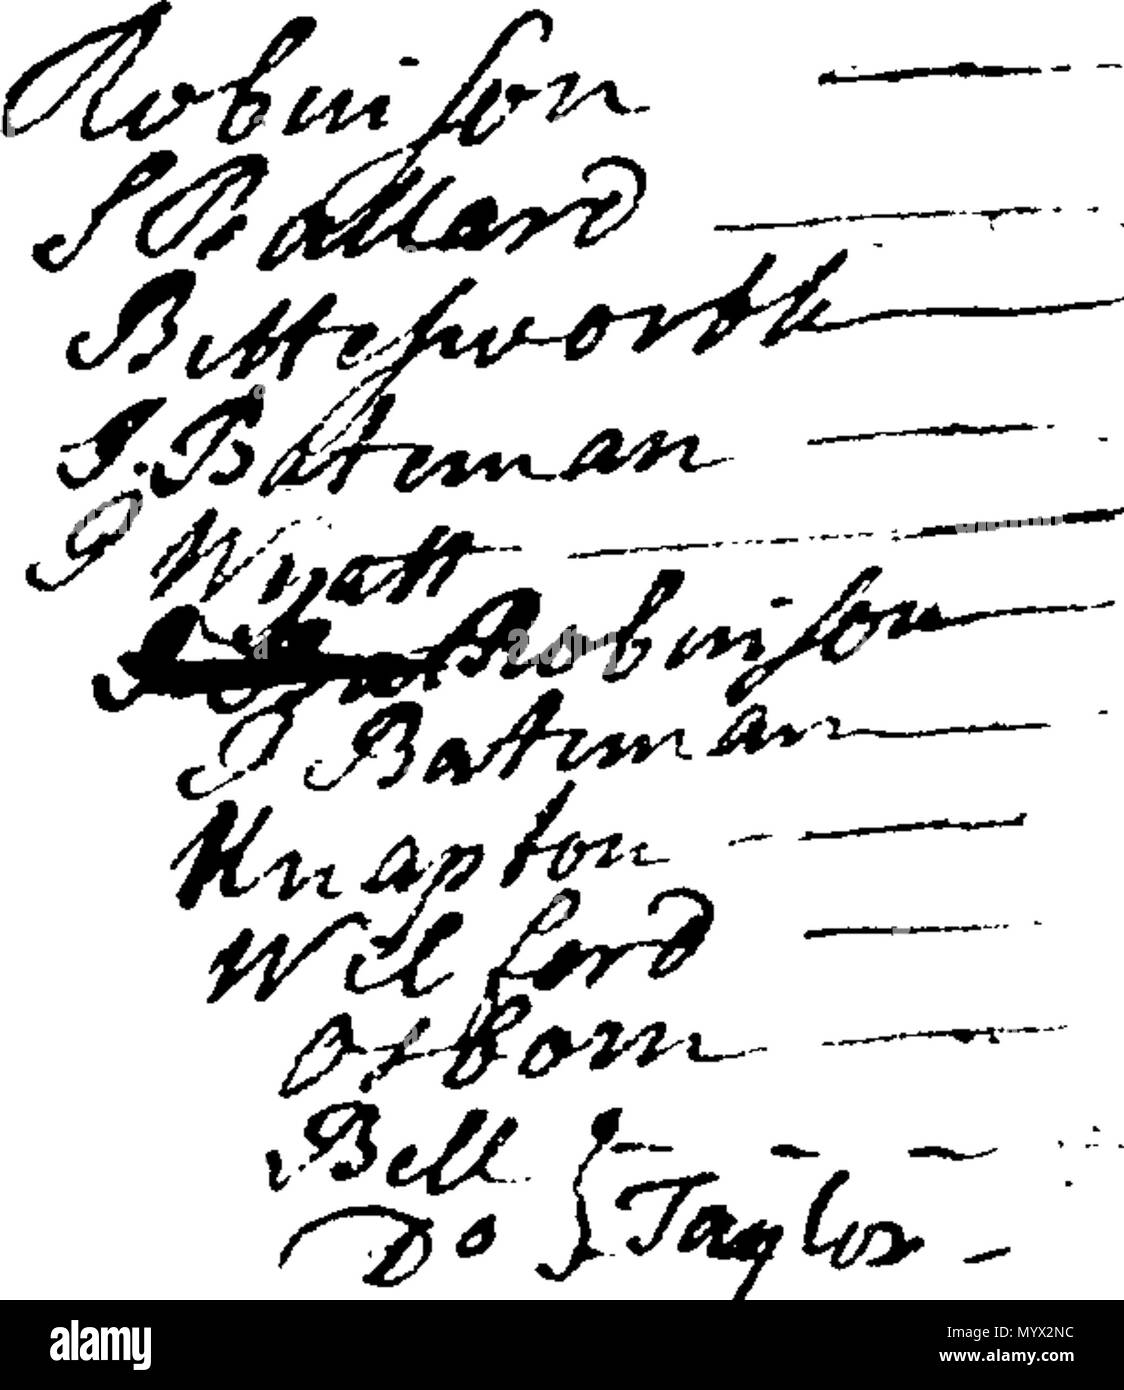 Robinson —
S Ballard —
Bettesworth —
J. Bateman —
J Wyatt —
Robinson —
J Bateman —
Knapton —
Wilford —
Osborn —
Bell } —
Do } Taylor —
alamy
Image ID: MYX2NC
www.alamy.com